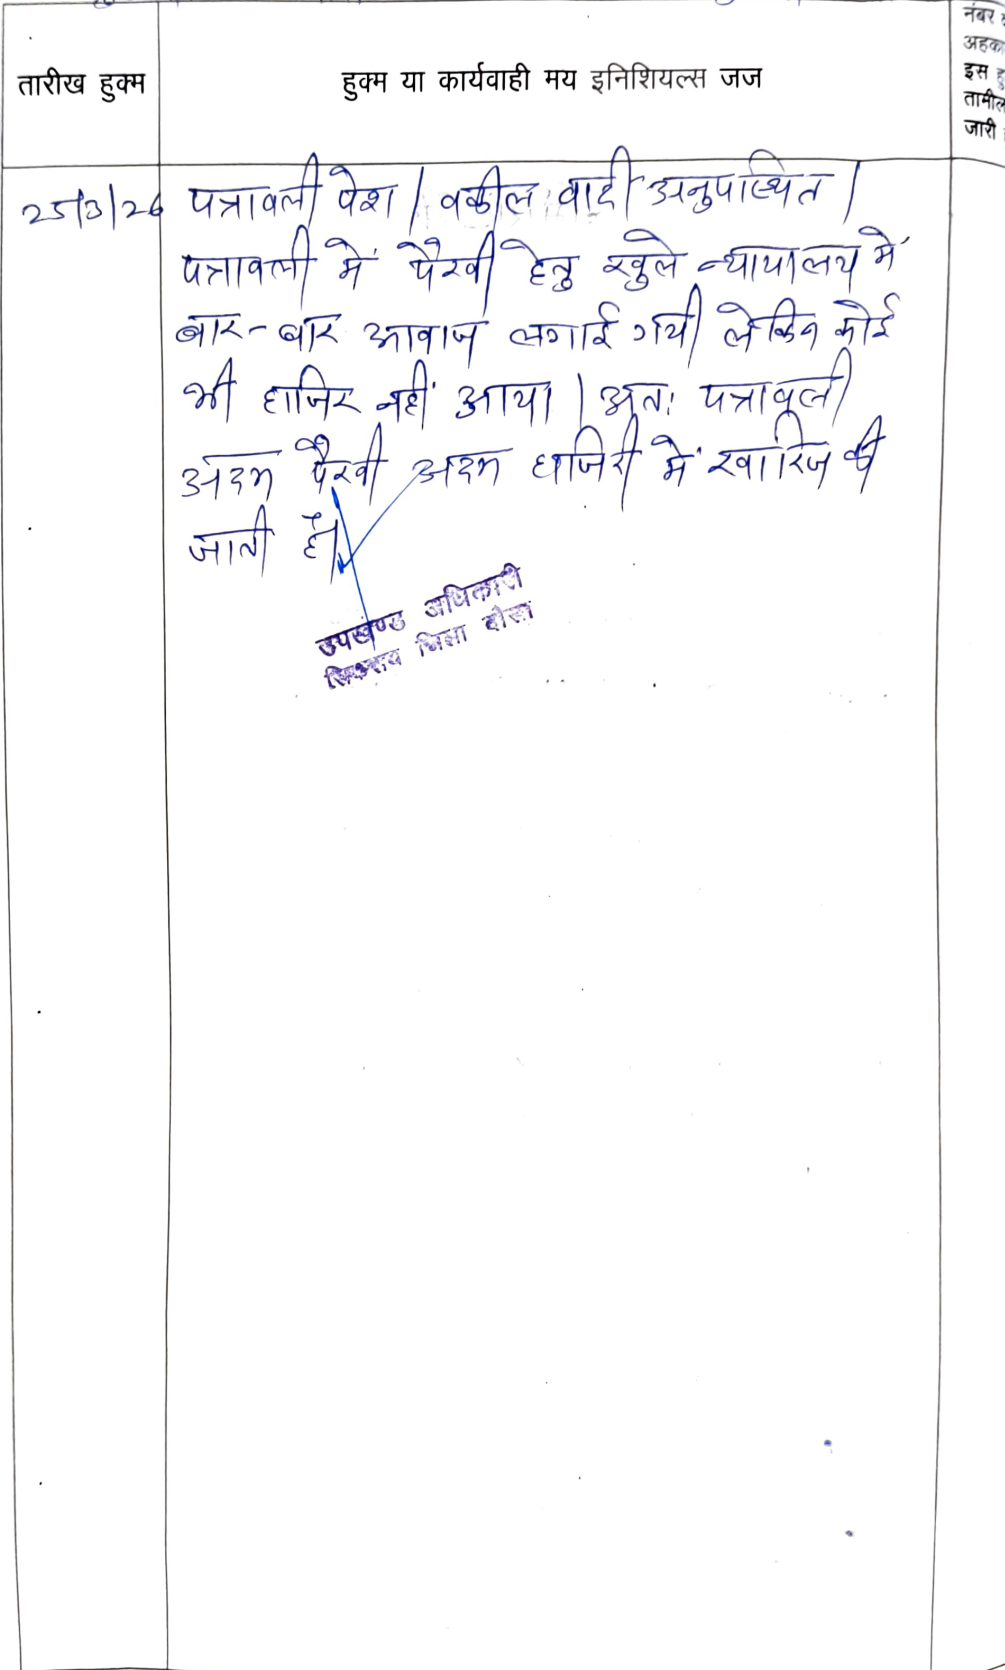 तारीख हुक्म
हुक्म या कार्यवाही मय इनिशियल्स जज
नंबर
अहका
इस
तामील
जारी
25/3/26 पत्रावली पेश | वकील वादी अनुपस्थित |
पत्रावली में पैरवी हेतु खुले न्यायालय में
बार-बार आवाज लगाई गयी लेकिन कोई
भी हाजिर नहीं आया | अतः पत्रावली
अदम पैरवी अदम हाजिरी में खारिज की
जाती है|
उपखण्ड अधिकारी
सिकराय जिला दौसा